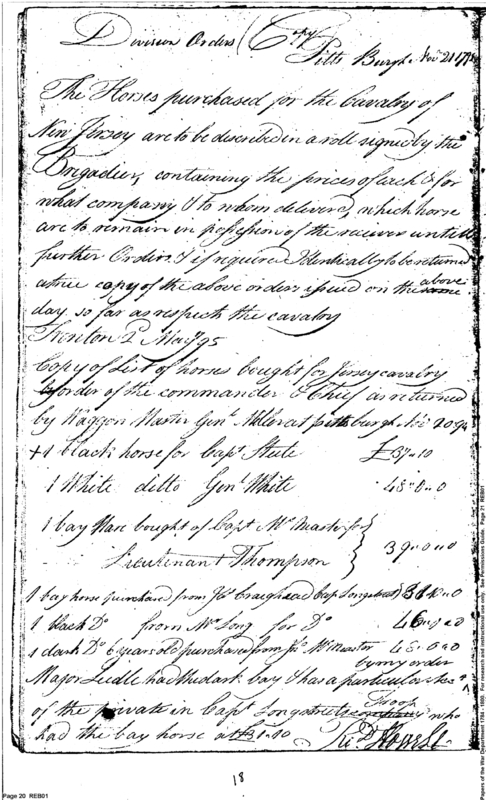 Division Orders (Copy)
Pitts Burgh Nov 21 179
The Horses purchased for the Cavalry of
New Jersey are to be described in a roll signed by the
Brigadier, containing the prices of each & for
what company & to whom delivered, which horse
are to remain in possession of the receiver untill
further Orders & if required Identically to be returned
a true copy of the above orders issued on the same above
day so far as respect the cavalry
Trenton 2 May 95
Copy of List of horses bought for Jersey cavalry
by order of the commander & Chief as returned
by Waggon Master Genl. Miller at pittsburgh Nov. 20 94
+1 black horse for Capt Steele £37..10
1 White ditto Genl White 45..0..0
1 bay Mare bought of Capt Mc Masters for
Lieutenant Thompson } 39..0..0
1 bay horse purchased from Jas Craighead Capt Longstreet) 31..10..0
1 black Do from Mr Long for Do 46..0..0
1 dark Do 6 years old purchased from Jno McMaster 45..0..0
by my order
Major Leedle had the dark bay & has a particular
of the private in Capt Longstreets company Troop who
had the bay horse at £31..10
Richd Howell
18
Page 20 REB01
Papers of the War Department 1784 - 1800. For research and educational use only. See Permissions Guide. Page 21 REB01